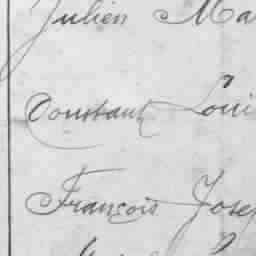 Julien Ma
Constant Loui
François Josep